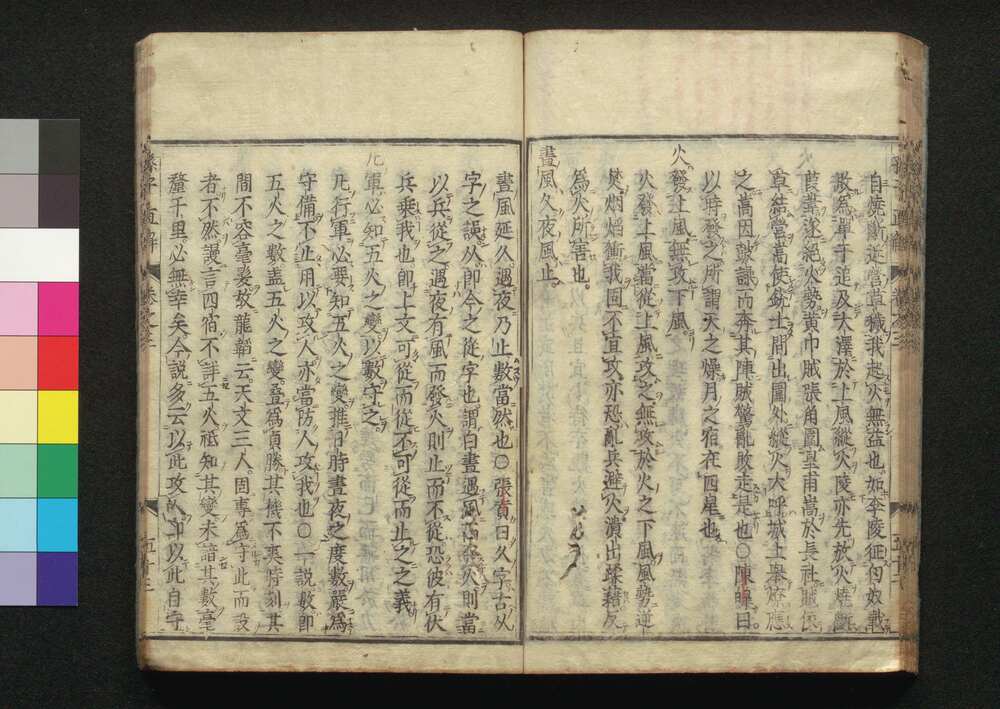 自燒斷近營草穢我起火無益也如李陵征匈奴戰
敗為單于追及大澤於上風縱火陵亦先放火燒斷
葭葦遂絕火勢黄巾賊張角圍皇甫嵩於長社賊依
草結營嵩使銳士間出圍外縱火大呼城上舉燎應
之嵩因鼓譟而奔其陳賊驚亂敗走是也○陳皥曰
以時發之所謂天之燥月之宿在四星也
火發上風無攻下風
火發上風當從上風攻之無攻於火之下風風勢逆
焚烟焰衝我固不宜攻亦恐亂兵避火潰出蹂藉反
為火所害也
晝風久夜風止
晝風延久遇夜乃止數當然也○張賁曰久字古从
字之誤从即今之從字也謂白晝遇風而發火則當
以兵從之遇夜有風而發火則止而不從恐彼有伏
兵乘我也即上文可從而從不可從而止之之義
凡軍必知五火之變以數守之
凡行軍必要知五火之變推日時晝夜之度數嚴為
守備不止用以攻人亦當防人攻我也○一說數即
五火之數盖五火之變疊為負勝其機不爽時刻其
間不容毫髮故龍韜云天文三人固專為守此而設
者不然謾言四宿不詳五火祗知其變未諳其數毫
釐千里必無幸矣今說多云以此攻敵即以此自守
孫子直解